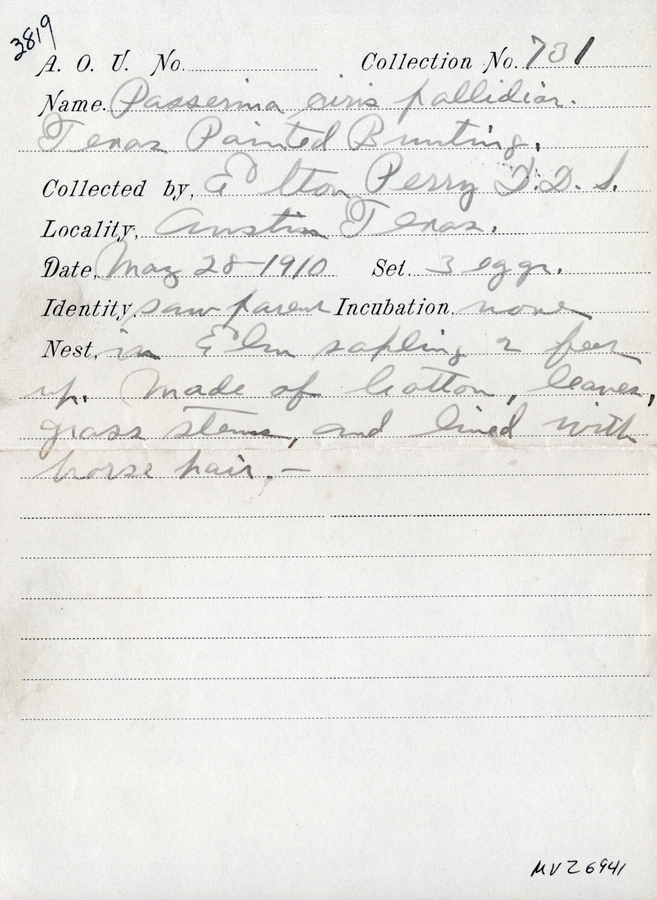 3819
A. O. U. No. Collection No. 731
Name. Passerina ciris pallidior.
Texas Painted Bunting.
Collected by, Elton Perry D.D.S.
Locality, Austin Texas.
Date, May 28-1910 Set. 3 eggs.
Identity, saw parent Incubation. none
Nest, in Elm sapling 2 feet
up. Made of Cotton, leaves,
grass stems, and lined with
horse hair. —
MVZ 6941